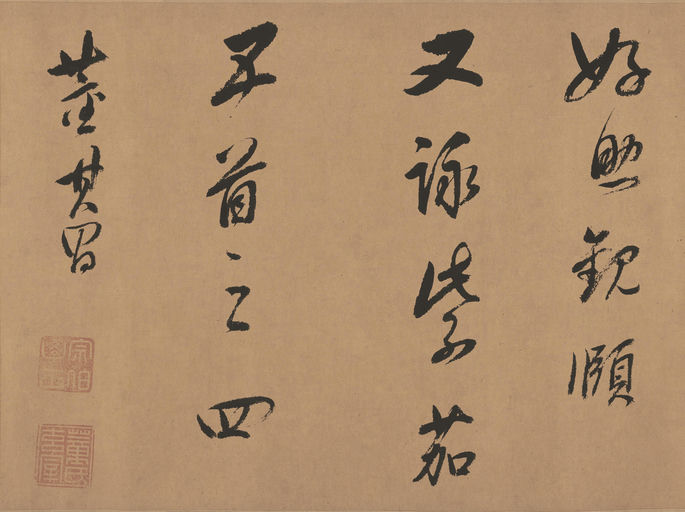 好觀頤
又詠紫茄
五首之四
董其昌
宗伯學士
董氏玄宰